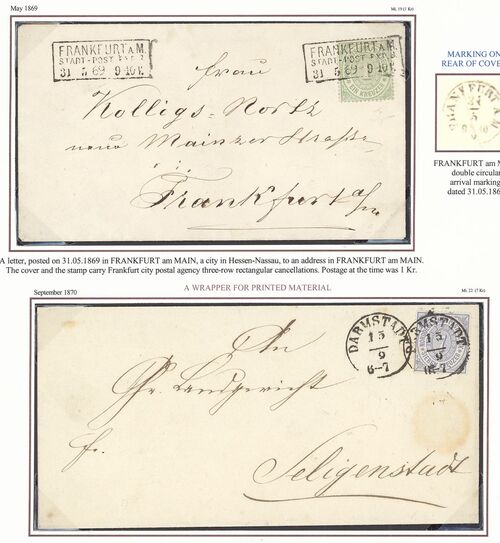 May 1869
Mi. 19 (1 Kr)
FRANKFURT a.M.
STADT-POST EXP. 
31 5 69 9-10 V.
FRANKFURT a.M.
STADT-POST EXP.
31 5 69 9-10 V.
Frau
Kolligs-Nortz
neue Mainzer Straße
Frankfurt a/m
MARKING ON
REAR OF COVE
FRANKFURT a.M.
31
5
FRANKFURT am M
double circular
arrival marking
dated 31.05.186
A letter, posted on 31.05.1869 in FRANKFURT am MAIN, a city in Hessen-Nassau, to an address in FRANKFURT am MAIN.
The cover and the stamp carry Frankfurt city postal agency three-row rectangular cancellations. Postage at the time was 1 Kr.
September 1870
A WRAPPER FOR PRINTED MATERIAL
Mi. 22 (7 Kr)
DARMSTADT
15
9
6-7
DARMSTADT
15
9
6-7
An
Gr. Landgericht
fr.
Seligenstadt